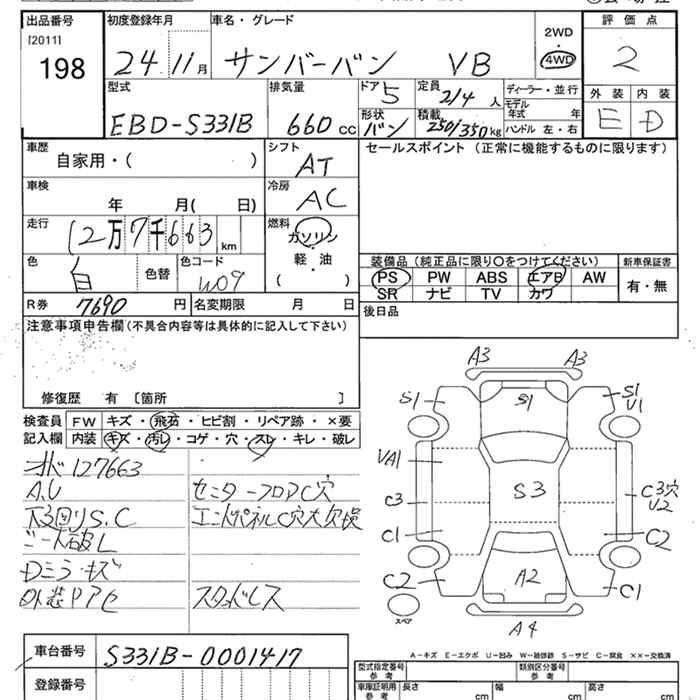 出品番号 初度登録年月 車名・グレード 評価点
[2011] 198 24 11月 サンバーバン VB 2WD 4WD 2
型式 排気量 ドア 5 定員 2/4人 ディーラー・並行 外装 内装
EBD-S331B 660cc 形状 バン 積載 250/350kg モデル年式 年 ハンドル 左・右 E D
車歴 自家用・( ) シフト AT セールスポイント (正常に機能するものに限ります)
車検 年 月( 日) 冷房 AC
走行 12万7千663km 燃料 ガソリン 軽・油 ( )
色 白 色替 色コード W09 装備品 (純正品に限り○をつけてください) 新車保証書
PS PW ABS エアB AW 有・無
SR ナビ TV カワ
R券 7690円 名変期限 月 日 後日品
注意事項申告欄(不具合内容等は具体的に記入して下さい)
修復歴 有 [箇所 ]
検査員 FW キズ・飛石・ヒビ割・リペア跡・×要
記入欄 内装 キズ・汚レ・コゲ・穴・スレ・キレ・破レ
127663
A.U センターフロアC穴
下回りS.C エンドパネルC穴大欠損
シート破レ
Dミラーキズ
外装PAC スタッドレス
A3 A3
S1 S1 S1 U1
VA1
C3 S3 C3穴 U2
C1 C2
C2 A2 C1
スペア A4
A-キズ E-エクボ U-凹み W-補修跡 S-サビ C-腐食 ××-交換済
車台番号 S331B-0001417
登録番号
型式指定番号 参考 類別区分番号 参考
車庫証明用 参考 長さ cm 幅 cm 高さ cm